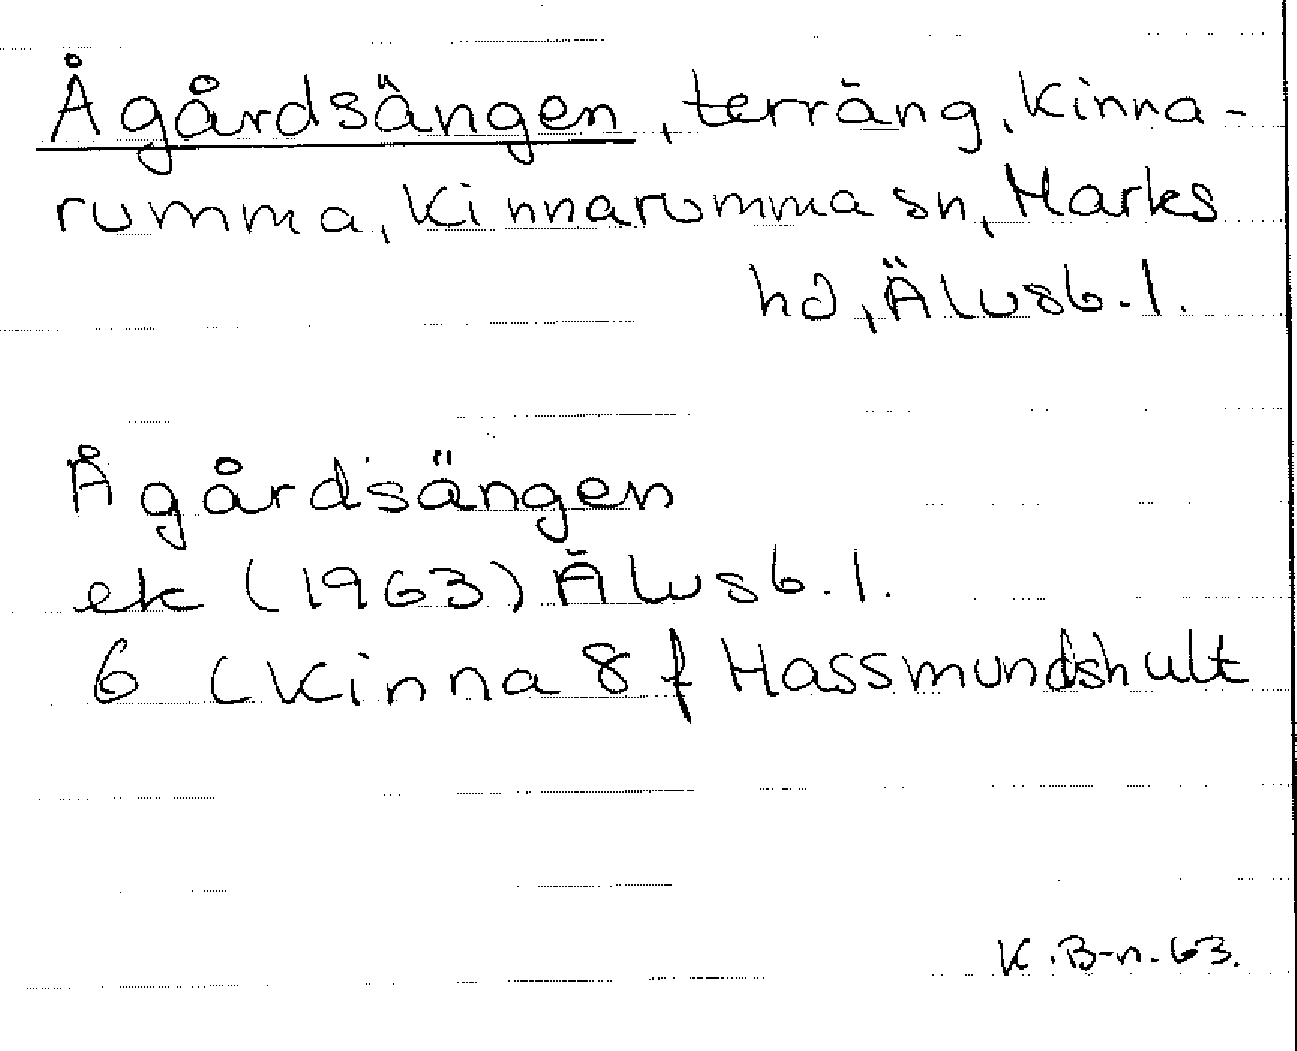 Ågårdsängen, terräng, Kinna-
rumma, Kinnarumma sn, Marks
hd, Älvsb. l.
Ågårdsängen
ek (1963) Älvsb. l.
6 (Kinna 8 f Hassmundshult
K. B-n. 63.